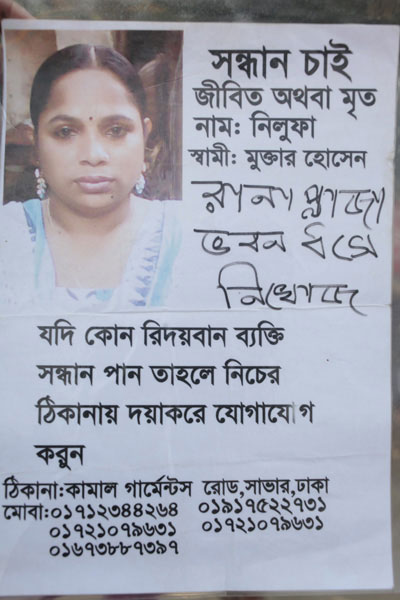 সন্ধান চাই
জীবিত অথবা মৃত
নাম: নিলুফা
স্বামী: মুক্তার হোসেন
রানা প্লাজা
ভবন ধসে
নিখোজ
যদি কোন রিদয়বান ব্যক্তি
সন্ধান পান তাহলে নিচের
ঠিকানায় দয়াকরে যোগাযোগ
করুন
ঠিকানা:কামাল গার্মেন্টস রোড,সাভার,ঢাকা
মোবা:০১৭১২৩৪৪২৬৪ ০১৯১৭৫২২৭৩১
০১৭২১০৭৯৬৩১ ০১৭২১০৭৯৬৩১
০১৬৭৩৮৮৭৩৯৭